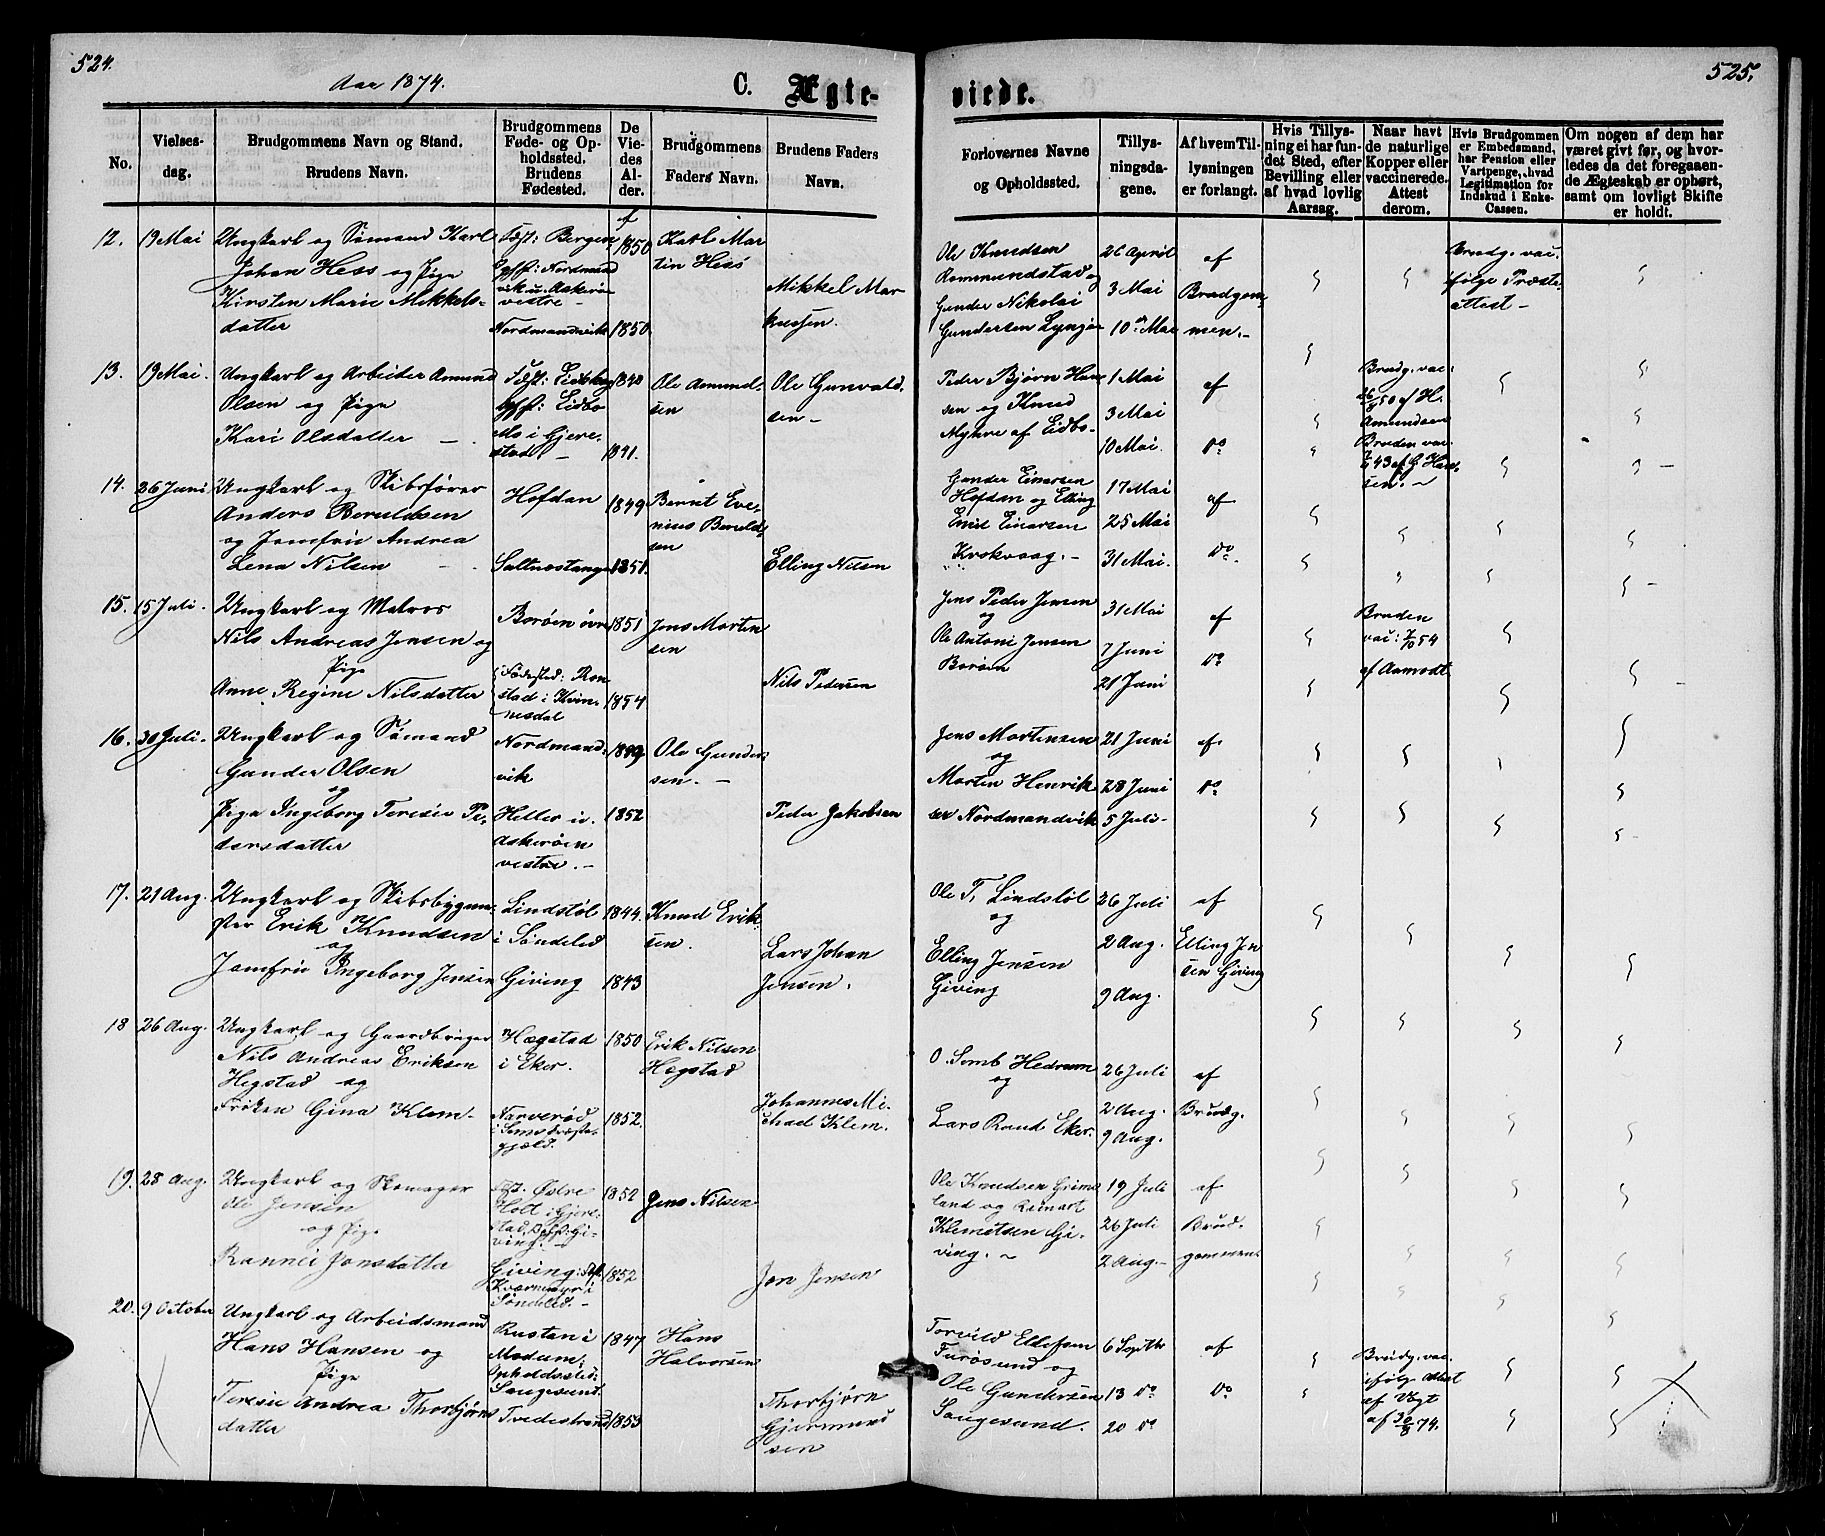 524.
525.
Aar 1874.
C. Ægteviede.
No.
Vielsesdag.
Brudgommens Navn og Stand.
Brudens Navn.
Brudgommens Føde- og Opholdssted.
Brudens Fødested.
De Viedes Alder.
Brudgommens Faders Navn.
Brudens Faders Navn.
Forlovernes Navne og Opholdssted.
Tillysningsdagene.
Af hvem Tillysningen er forlangt.
Hvis Tillysning ei har fundet Sted, efter Bevilling eller af hvad lovlig Aarsag.
Naar havt de naturlige Kopper eller vaccinerede. Attest derom.
Hvis Brudgommen er Embedsmand, har Pension eller Vartpenge, hvad Legitimation for Indskud i Enke-Cassen.
Om nogen af dem har været givt før, og hvorledes da det foregaaende Ægteskab er ophørt, samt om lovligt Skifte er holdt.
12. 19 Mai
Ungkarl og Sømand Karl
Johan Hess og Pige
Kirsten Marie Mikkels-
datter
Føst: Bergen
Nordmandvik
1850
1850
Karl Mar
tin Hess
Mikkel Mar
kussen.
Ole Knudsen
Rommundstad og
Gunder Nikolai
Gundersen Lyngør
26 April
3 Mai
10 Mai
af
Brudgom
men.-
Brudg. vac.
følge Præste
attest -
13. 19 Mai.
Ungkarl og Arbeider Amund
Olsen og Pige
Kari Olsdatter -
Eidbo
Mo i Gjere-
stad -
1841.
Ole Amund-
sen
Ole Gunvald
sen -
Peder Bjørn Han
sen og Knud
Myhre af Eidbo-
1 Mai
3 Mai
10 Mai.
af
Do
Brudg. vac:
26/8 50 af H.
Amundsen
Bruden vac
43 af G Han
sen. -
14. 26 Juni
Ungkarl og Skibsfører
Anders Berntsen
og Jomfru Andrea
Lena Nilsen
Hofdan
Saltnestangen
1849
1851.
Bernt Eve-
nius
sen
Elling Nilsen
Gunder Einersen
Hofdan og Elling
Emil Einersen
Krokvaag. -
17 Mai
25 Mai
31 Mai.
af
Do.
15. 15 Juli.
Ungkarl og Matros
Nils Andreas Jensen og
Pige
Anne Regine Nilsdatter
Borøen øvre
Fødested: Ron
stad i Kvin-
nesdal
1851
1854
Jens Morten
sen
Nils Pedersen
Jens Peder Jensen
og
Ole Antoni Jensen
Borøen
31 Mai
7 Juni
21 Juni
af
Do
Bruden
vac: 7/10 54
af Aamodt
16. 30 Juli.
Ungkarl og Sømand
Gunder Olsen
og
Pige Ingeborg Teresie Pe-
dersdatter
Nordmand-
vik
Heller i
Askerøen
vestre. -
1849
1852
Ole Gunder
sen. -
Peder Jakobsen
Jens Mortensen
og
Morten Henrik
sen Nordmandvik
21 Juni
28 Juni
5 Juli-
af
Do
17. 21 Aug.
Ungkarl og Skibsbygme-
ster Erik Knudsen
og
Jomfru Ingeborg Jensen
Lindstøl
i Søndeled
Giving
1844.
1843
Knud Erik
sen.
Lars Johan
Jensen.
Ole T. Lindstøl
og
Elling Jensen
Giving
26 Juli
2 Aug.
9 Aug.
af
Elling Jen
sen Giving
18 26 Aug.
Ungkarl og Gaardbruger
Nils Andreas Eriksen
Hegstad og
Frøken Gina Klem.
Hægstad
i Eker.
Narverød
i Sems Præste-
gjæld.
1850
1852.
Erik Nilsen
Hægstad
Johannes Mi-
chael Klem.
O. Semb Hedrum
og
Lars Rand Eker.
26 Juli
2 Aug.
9 Aug.
af
Brudg.
19. 28 Aug.
Ungkarl og Skomager
Ole Jensen
og Pige
Rannei Jonsdatter
Østre
Holt i Gjere-
stad, Gi-
ving. -
Giving: Føst
Kværnmyr i
Søndeled. -
1852
1852
Jens Nilsen
Jon Jensen
Ole Knudsen Grims
land og Reinart
Klemetsen Gi-
ving. -
19 Juli
26 Juli
2 Aug. -
af
Brud-
gommen.
20. 9 October
Ungkarl og Arbeidsmand
Hans Hansen og
Pige
Teresie Andrea Thorbjørns
datter
Rustan i
Modum.
Opholdssted:
Saugesund.
Tvedestrand
1847
1853
Hans
Halvorsen
Thorbjørn
Gjermund
sen
Torvild Ellefsen
Furøsund og
Ole Gundersen
Saugesund.
6 Septbr
13 Do
20 Do
af
Do
Brudg. vac.
ifølge Attest
af Vogt
af 30/8 74.